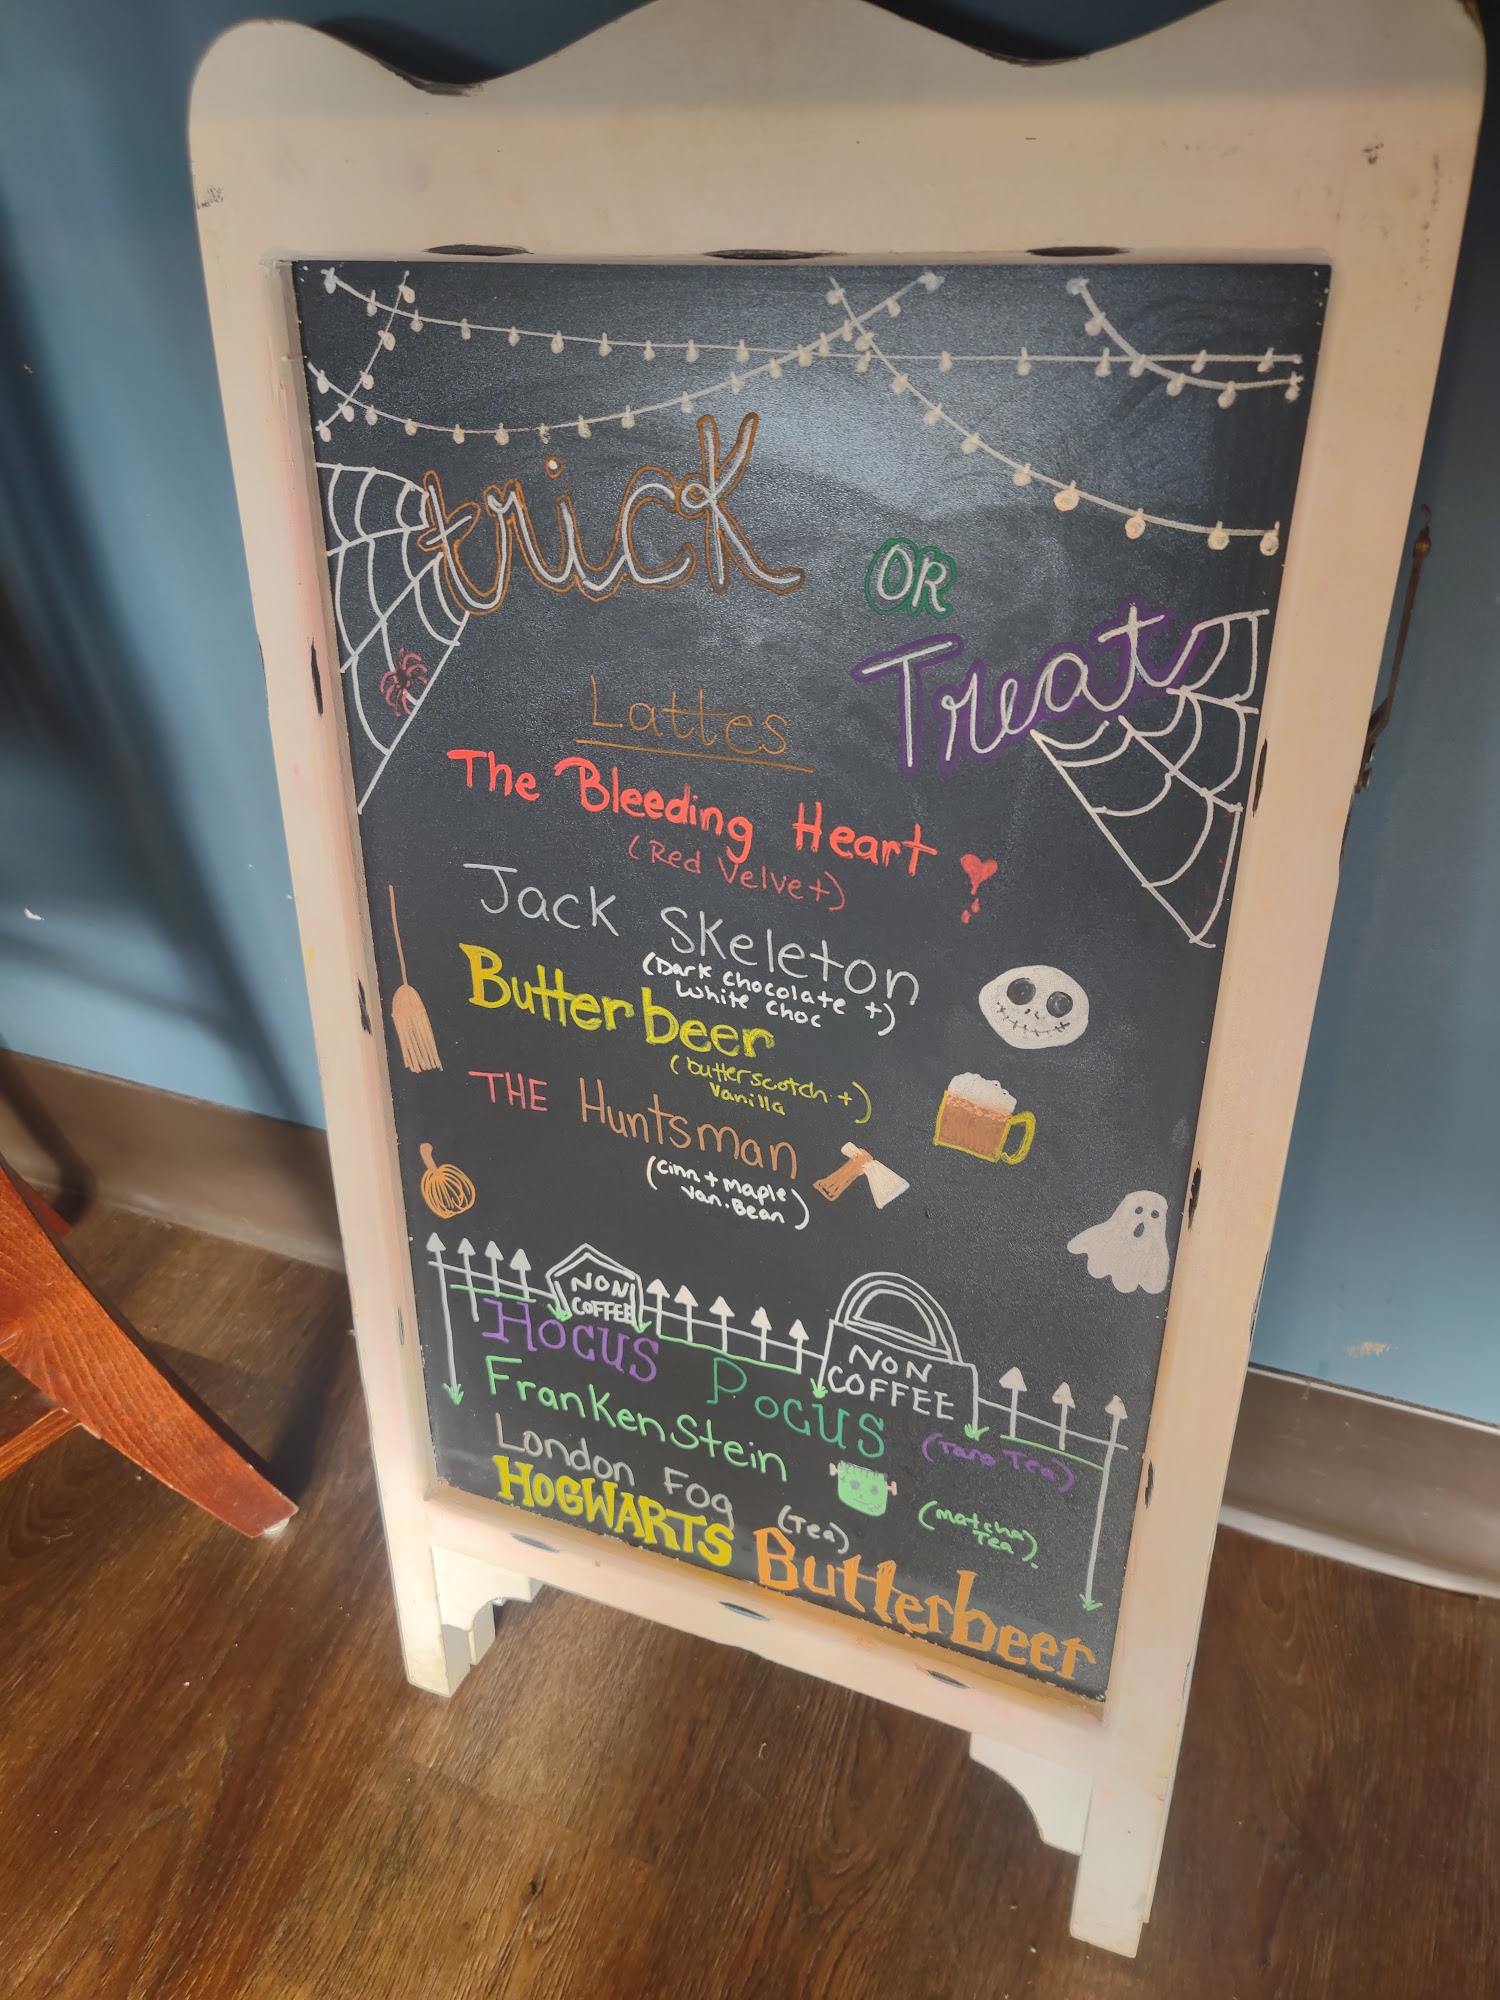 trick
OR
Treat
Lattes
The Bleeding Heart
(Red Velvet)
Jack Skeleton
(Dark Chocolate +
White Choc)
Butterbeer
(butterscotch +
Vanilla)
THE Huntsman
(cinn + maple
Van. Bean)
NON
COFFEE
NON
COFFEE
Hocus Pocus
(Taro Tea)
FrankenStein
(matcha
Tea).
London Fog
(Tea)
HOGWARTS Butterbeer